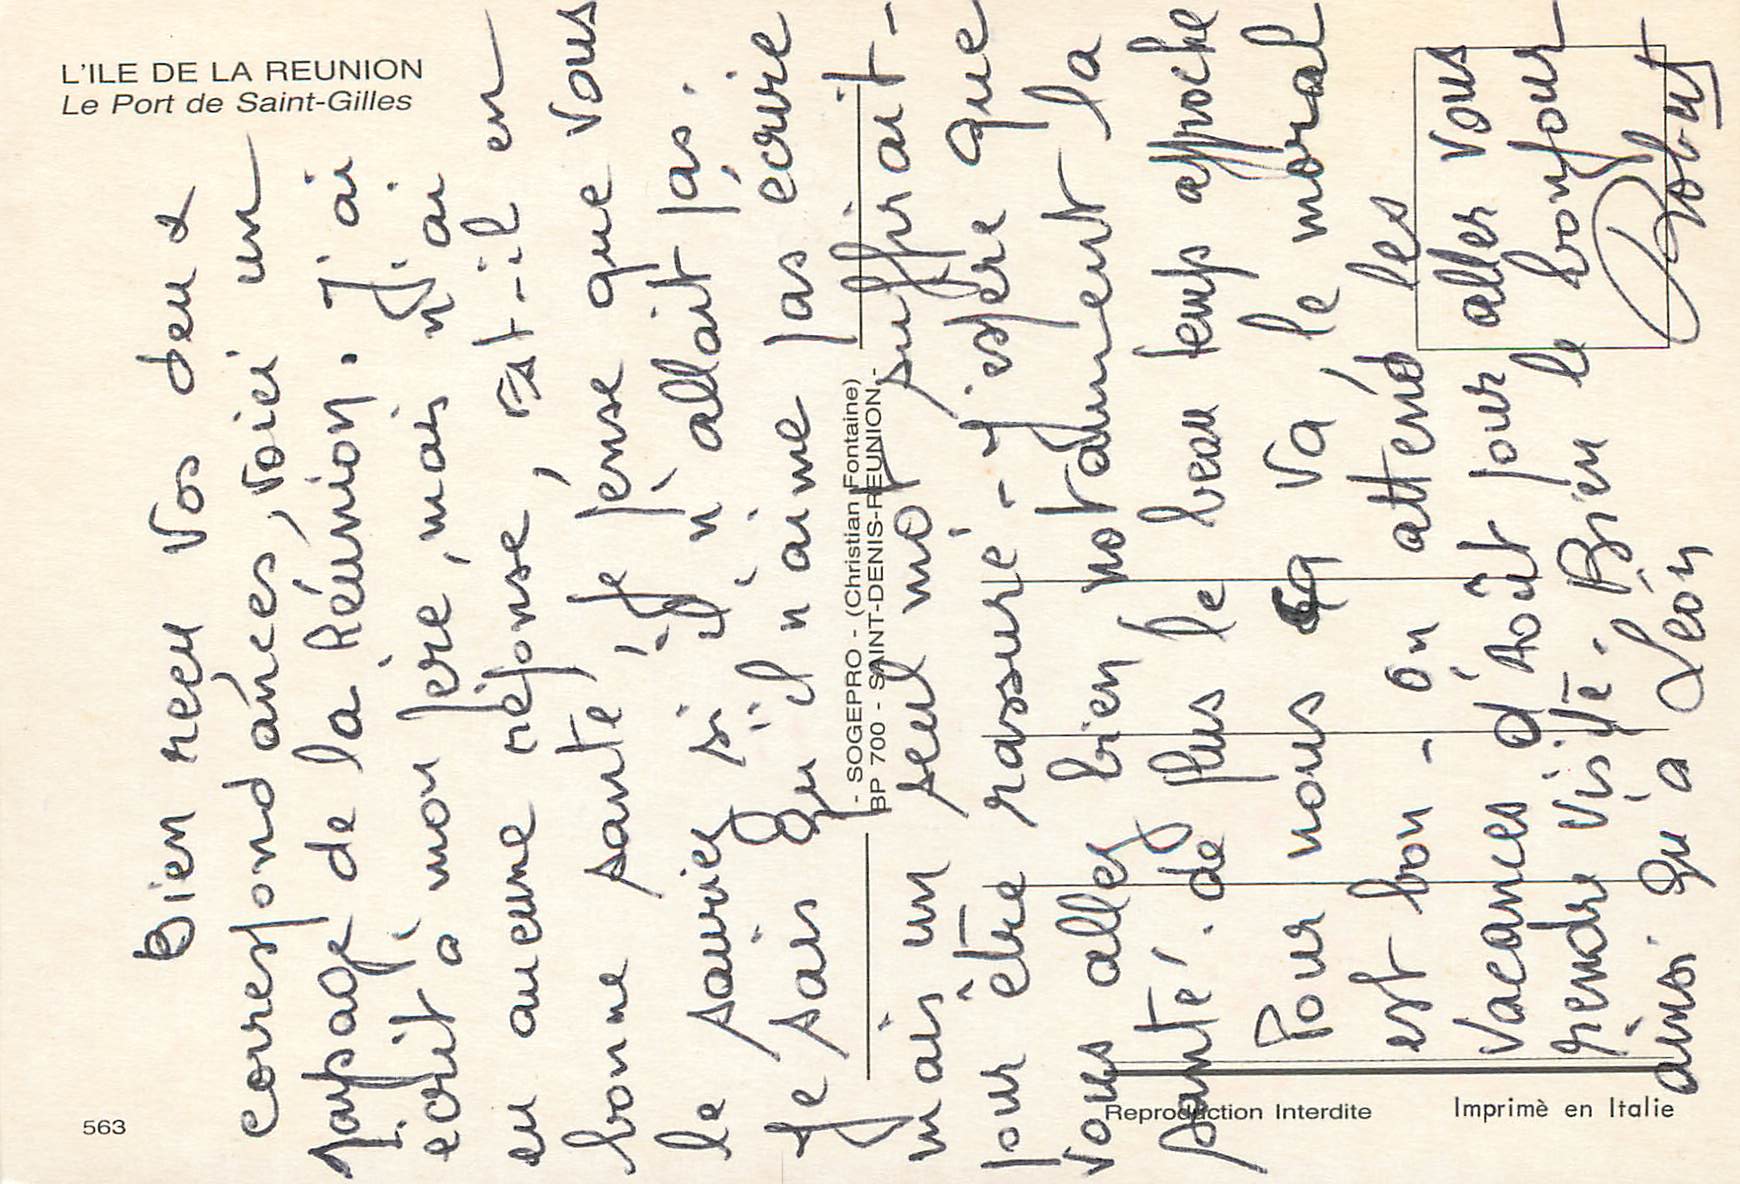 L'ILE DE LA REUNION
Le Port de Saint-Gilles
Bien reçu vos deux
correspondances, voici un
paysage de la Réunion. J'ai
écrit à mon père, mais n'ai
eu aucune réponse, Est-il en
bonne santé, je pense que vous
le sauriez si il n'allait pas.
Je sais qu'il n'aime pas écrire
mais un seul mot suffirait -
pour être rassuré - J'espère que
vous allez bien notamment la
santé. de plus le beau temps approche
Pour nous ça va, le moral
est bon - on attend les
vacances d'Août pour aller vous
rendre visite. Bien le bonjour
ainsi qu'à Léon Robert
- SOGEPRO - (Christian Fontaine)
BP 700 - SAINT-DENIS-REUNION -
563
Reproduction Interdite
Imprimè en Italie